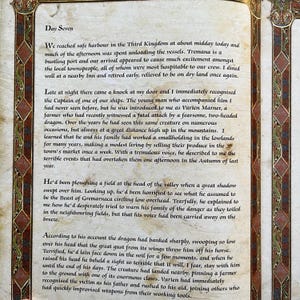 Day Seven
We reached safe harbour in the Third Kingdom at about midday today and
much of the afternoon was spent unloading the vessels. Tremana is a
bustling port and our arrival appeared to cause much excitement amongst
the local townspeople, all of whom were most hospitable to our crew. I dined
well at a nearby Inn and retired early, relieved to be on dry land once again.
Late at night there came a knock at my door and I immediately recognised
the Captain of one of our ships. The young man who accompanied him I
had never seen before, but he was introduced to me as Varkin Marner, a
farmer who had recently witnessed a fatal attack by a fearsome, two-headed
dragon. Over the years he had seen this same creature on numerous
occasions, but always at a great distance high up in the mountains. I
learned that he and his family had worked a smallholding in the lowlands
for many years, making a modest living by selling their produce in the
town's market once a week. With a tremulous voice, he described to me the
terrible events that had overtaken them one afternoon in the Autumn of last
year.
He'd been ploughing a field at the head of the valley when a great shadow
swept over him. Looking up, he'd been horrified to see what he assumed to
be the Beast of circling low overhead. Tearfully, he explained to
me how he'd desperately tried to warn his family of the danger as they toiled
in the neighbouring fields, but that his voice had been carried away on the
breeze.
According to his account the dragon had banked sharply, swooping so low
over his head that the great gust from its wings threw him off his horse.
Terrified, he'd lain face down in the soil for a few moments, and when he
raised his head he beheld a sight so terrible that it will, I fear, stay with him
until the end of his days. The creature had landed nearby, pinning a farmer
to the ground with one of its enormous claws. Varkin had immediately
recognised the victim as his father and rushed to his aid, joining others who
had quickly improvised weapons from their working tools.